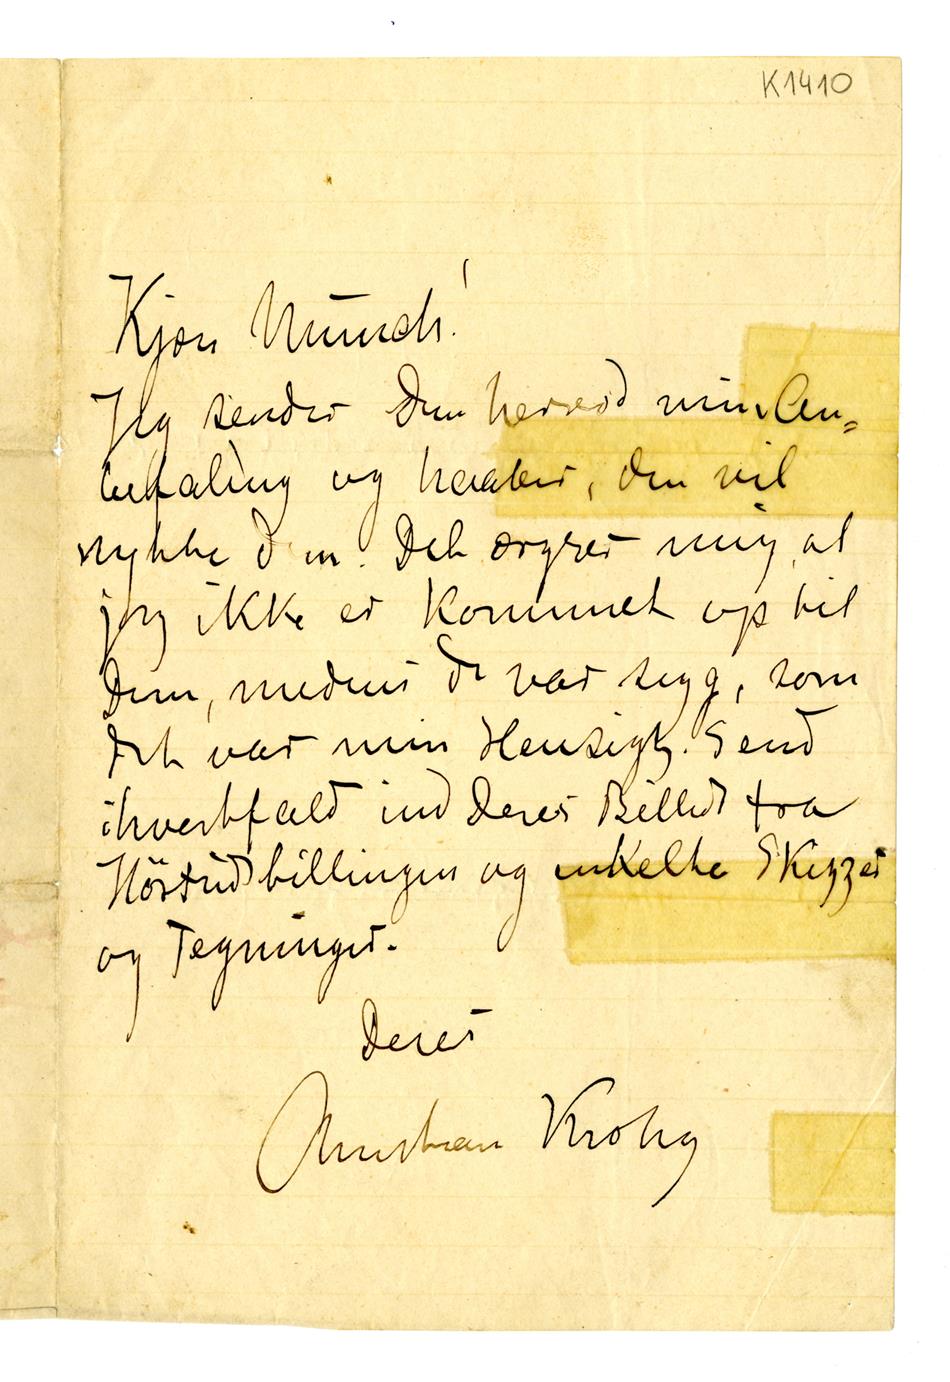 K1410
Kjære Munch!
Jeg sender Dem herved min An=
befaling og haaber, den vil
nytte Dem. Det ærgrer mig, at
jeg ikke er kommet op til
Dem, medens De var syg, som
det var min Hensigt. Send
ihvertfald ind Deres Billed fra
Höstudstillingen og enkelte Skizzer
og Tegninger.
Deres
Christian Krohg